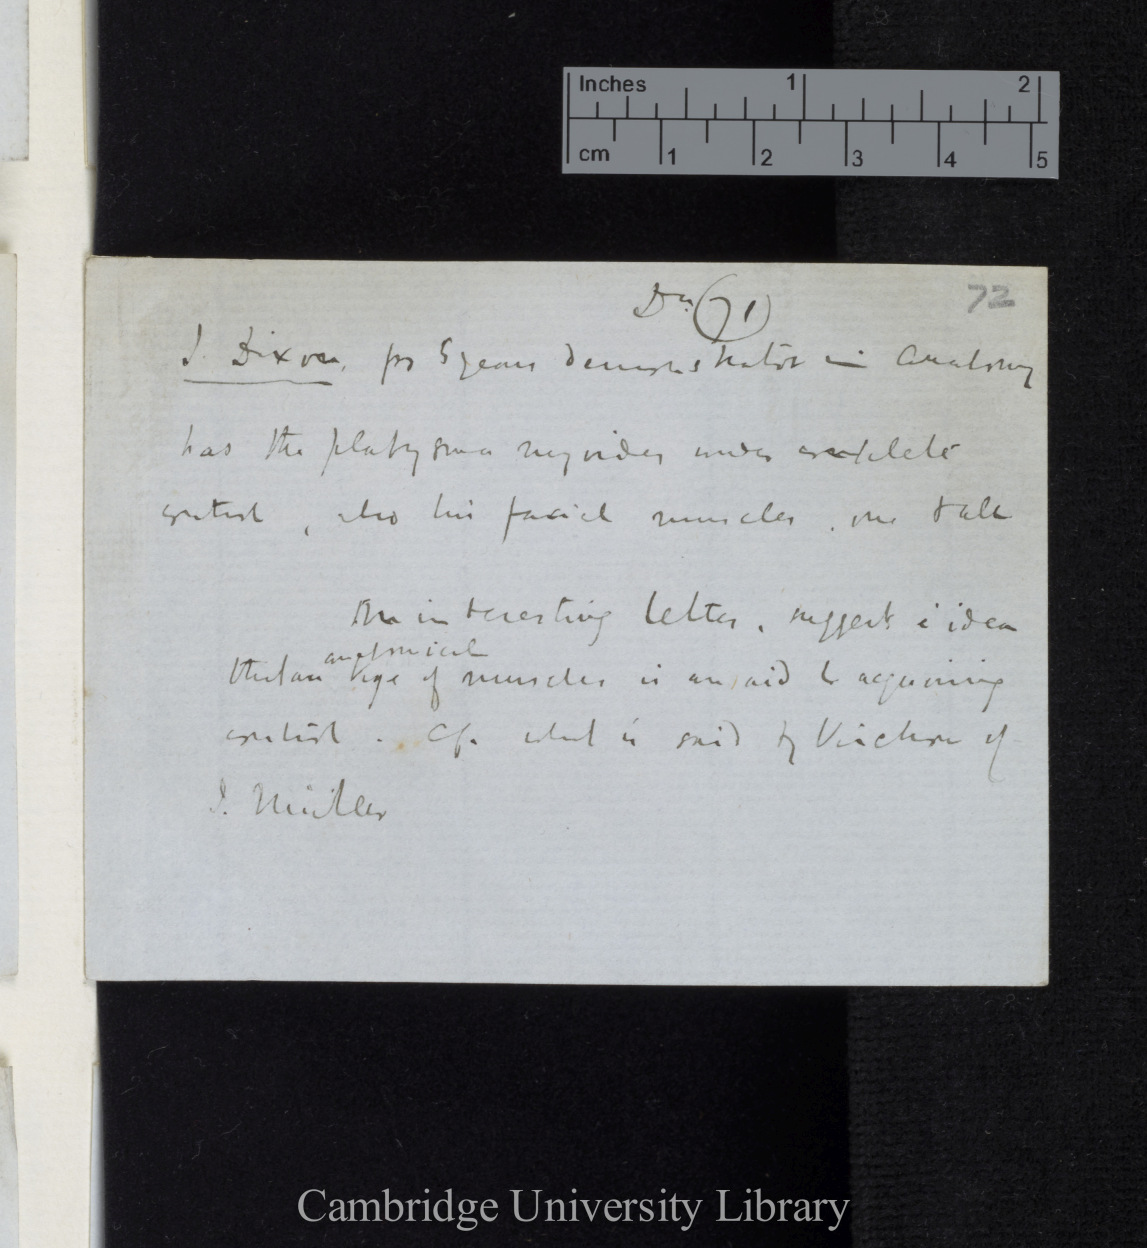 Inches 1 2
cm 1 2 3 4 5
72
(71)
J. Dixon, for 5 years demonstrator in Anatomy
has the platysma myoides under complete
control, also his facial muscles.
An interesting letter. suggests idea
anatomical
that an of muscles is an aid to acquiring
control. Cf. what is said by Virchow of
J. Müller
Cambridge University Library